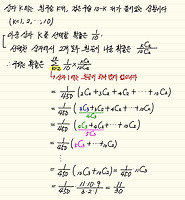 상자 K에는 흰공을 K개, 검은공을 10-K 개가 들어있는 상황이다
(K=1, 2, …, 10)
상자 K를 선택할 확률은 1/10.
선택한 상자에서 2개 모두 흰공이 나올 확률은 KC2/10C2
∴ 구하는 확률은 1/10 × KC2/10C2
= 1/450 (2C2 + 3C2 + … + 10C2)
= 1/450 (3C3 + 3C2 + 4C2 + … + 10C2)
4C3
= 1/450 (4C3 + 4C2 + … + 10C2)
5C3
= 1/450 (5C3 + … + 10C2)
⋮
= 1/450 (10C3 + 10C2) = 1/450 11C3
= 1/450 · 11·10·9/3·2·1 = 11/30